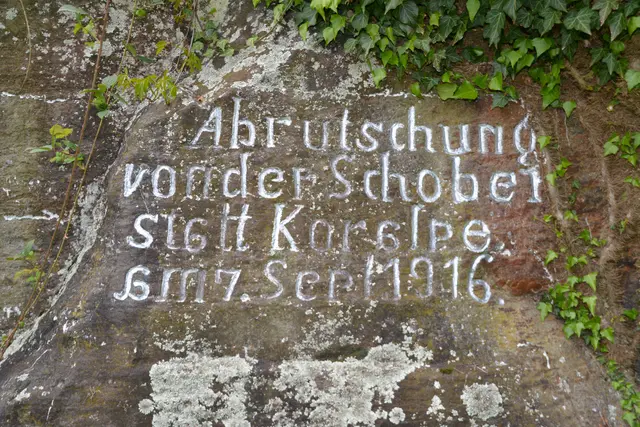 Abrutschung
von der Schober
statt Koralpe
am 7 Sept 1916.